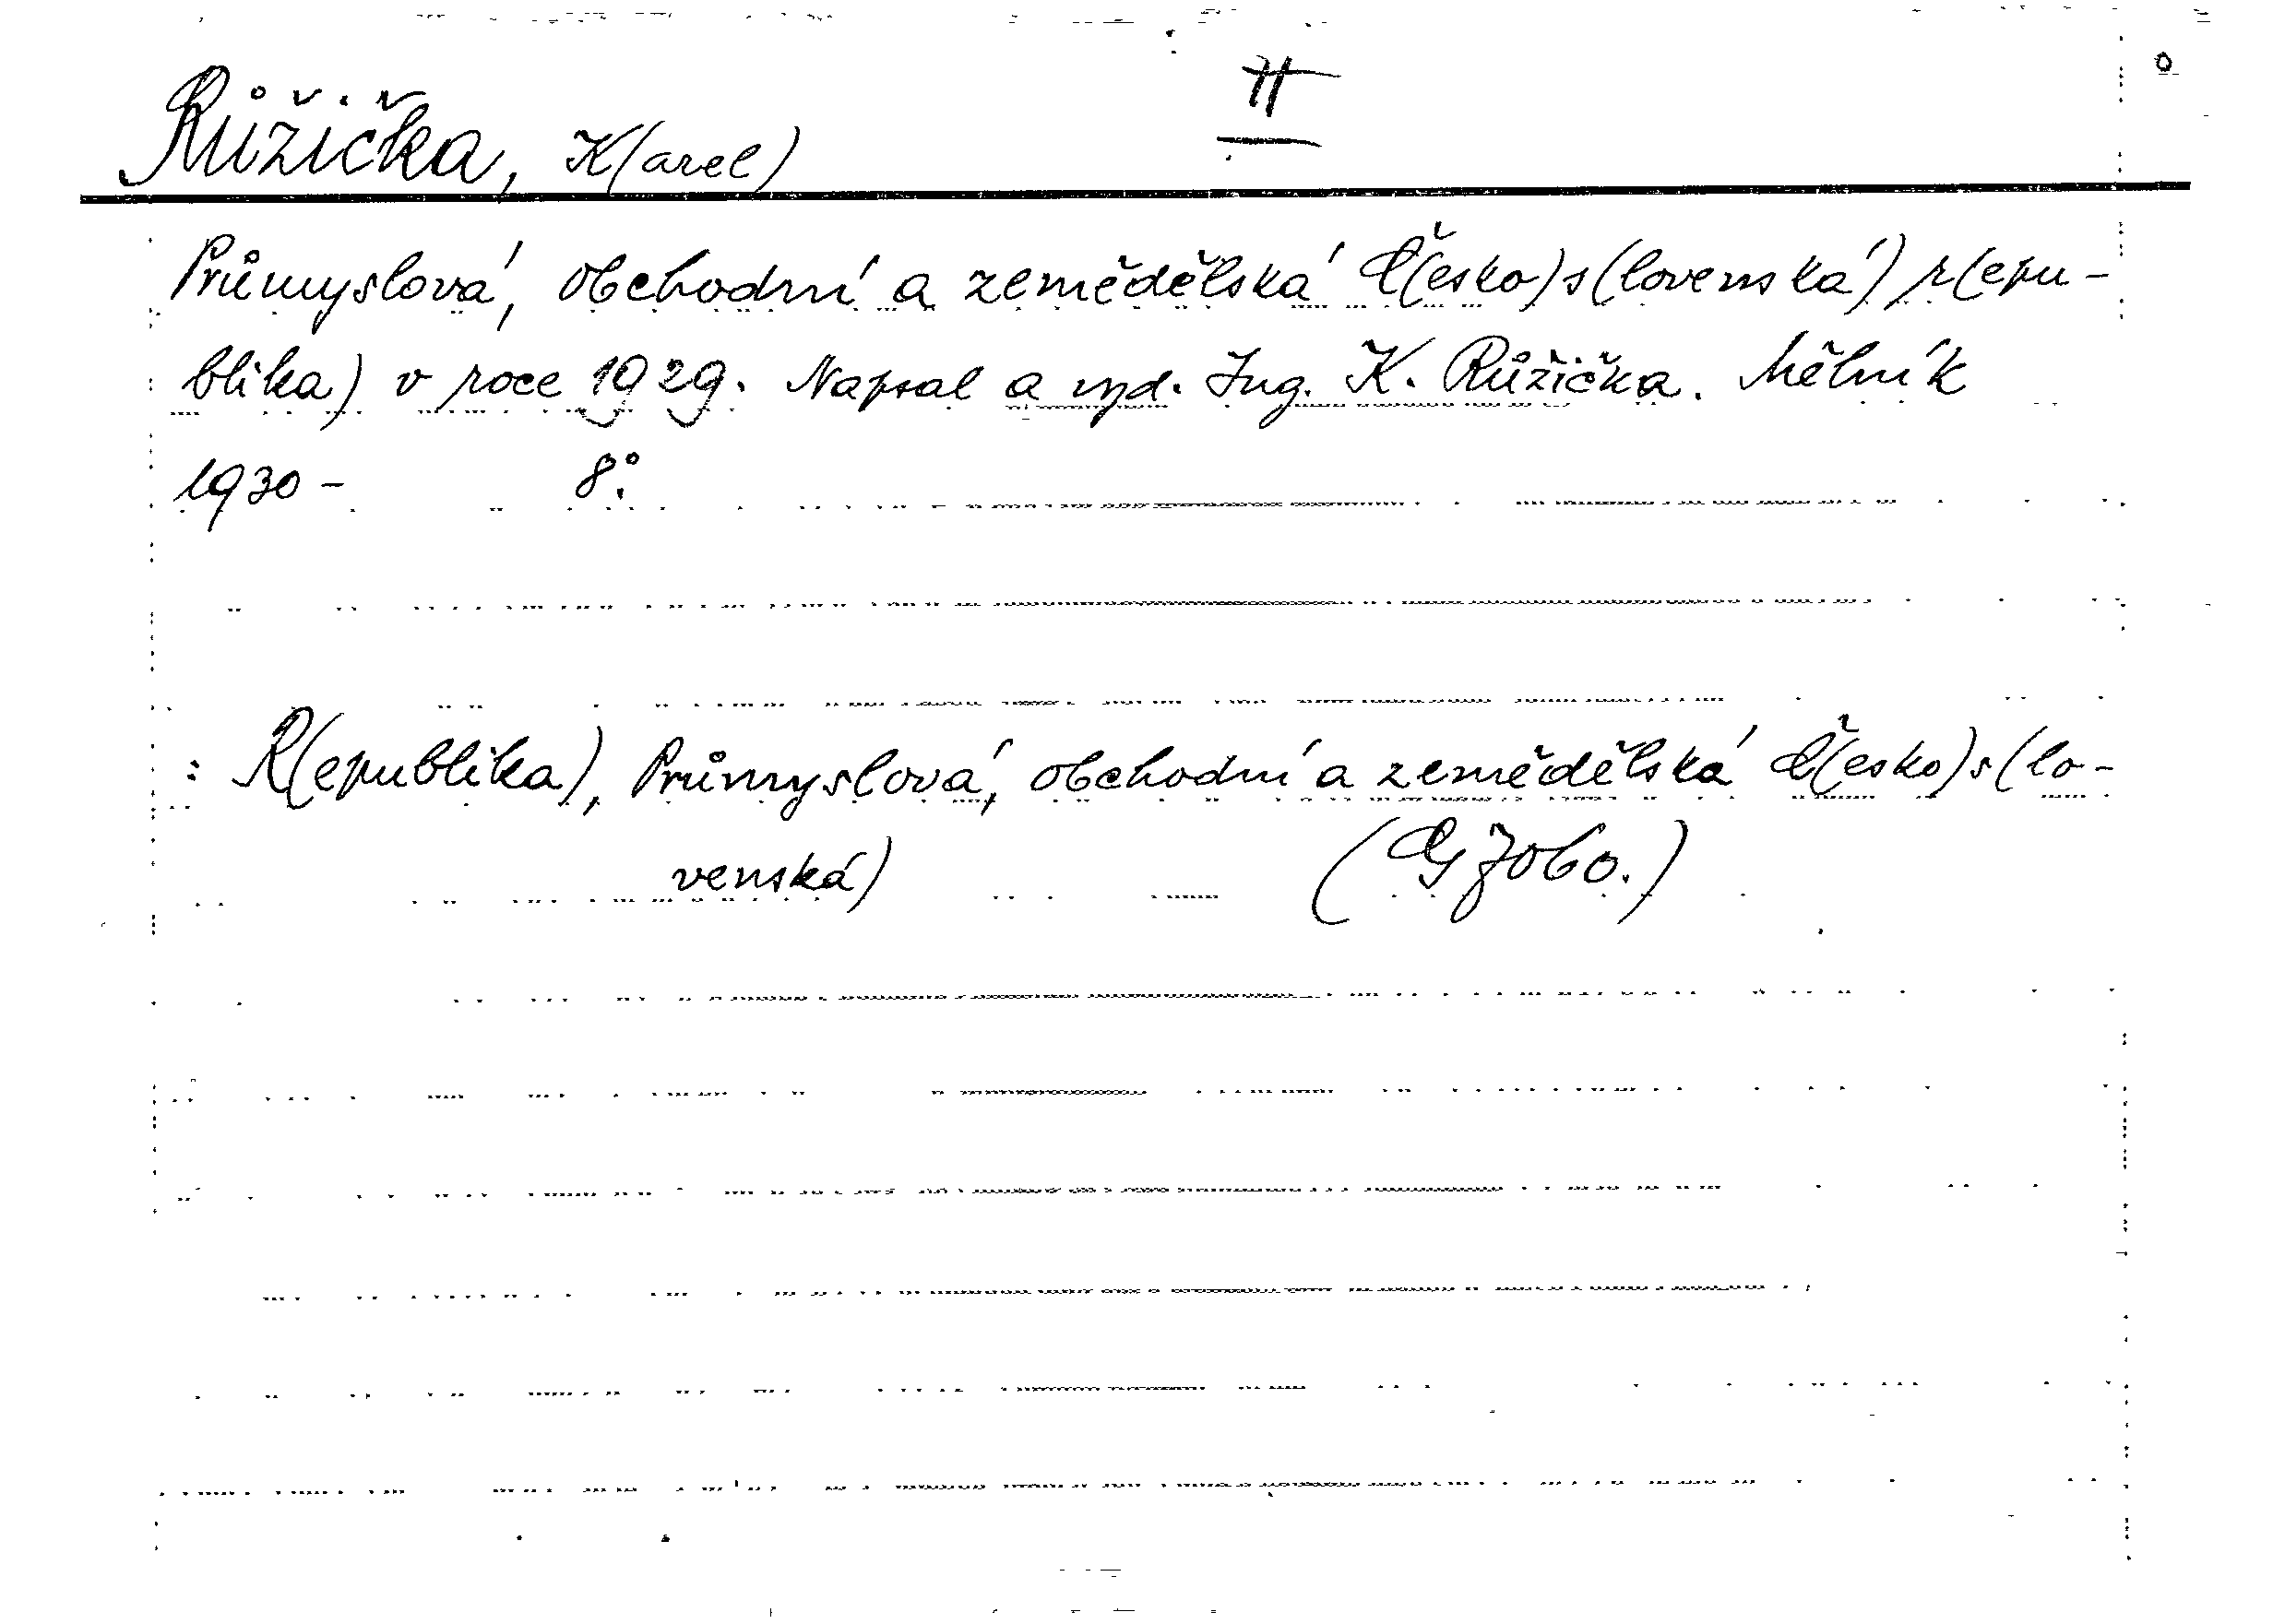 Růžička, K(arel)
II
Průmyslová, obchodní a zemědělská Č(esko)s(lovenská) r(epu-
blika) v roce 1929. Napsal a vyd. Ing. K. Růžička. Mělník
1930- 8°.
: R(epublika), Průmyslová, obchodní a zemědělská Č(esko)s(lo-
venská)